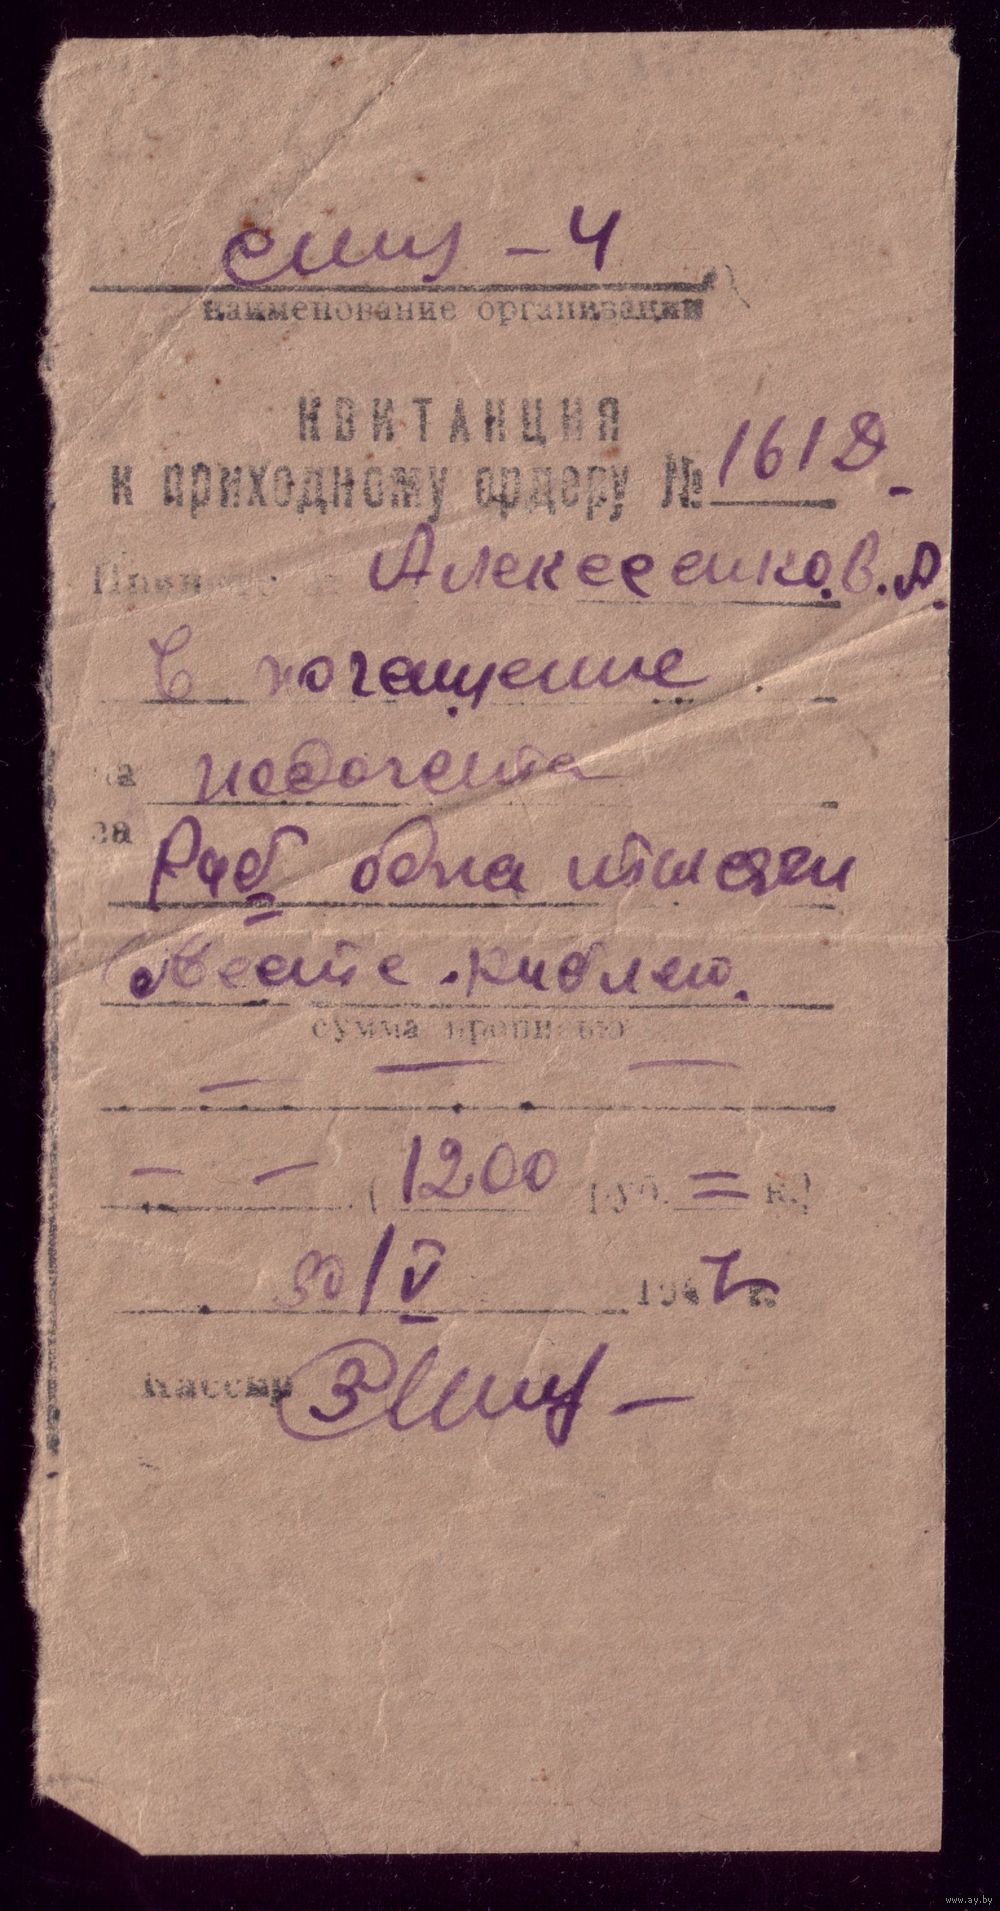 смц - 4
наименование организации
КВИТАНЦИЯ
к приходному ордеру № 1612
Алексеенко. В. А.
В погашение
недочета
за
Руб одна тысяча
двести рублей.
сумма прописью
— — —
— — (1200 руб. = к.)
30/V 1947 г.
Кассир
www.ay.by